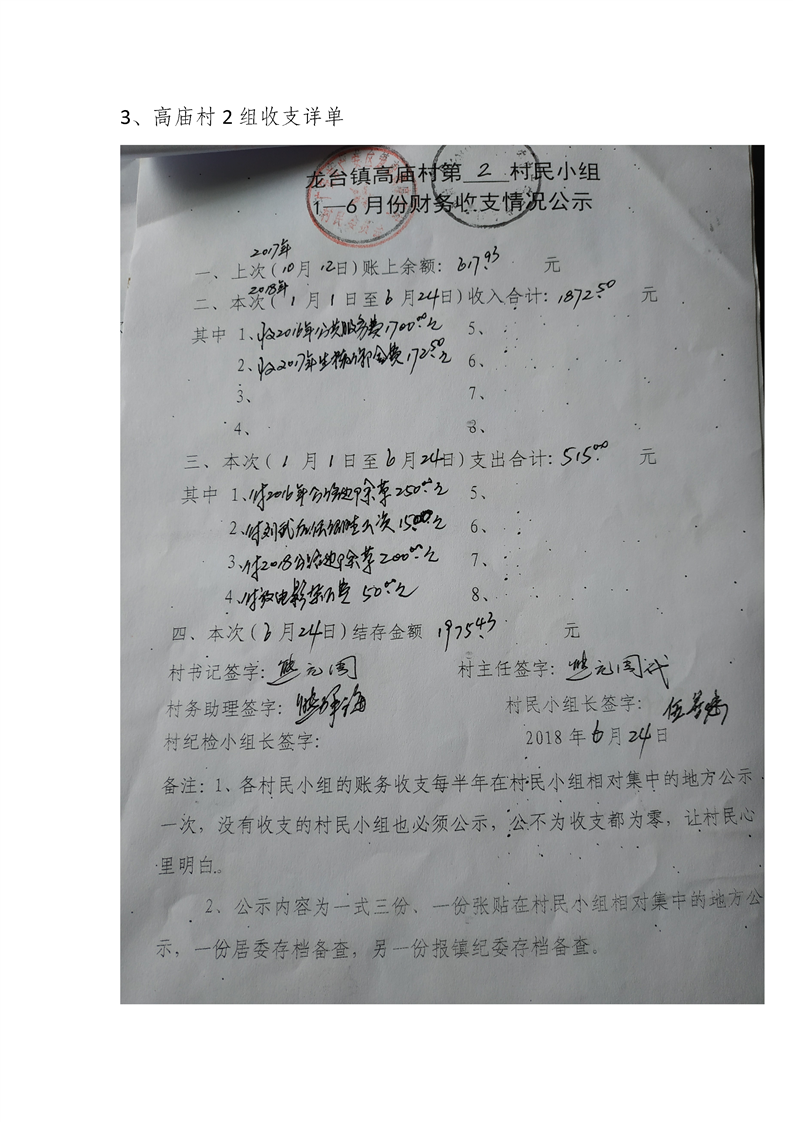 3、高庙村2组收支详单
龙台镇高庙村第 2 村民小组
1—6月份财务收支情况公示
2017年
一、上次(10月12日)账上余额: 617.93 元
2018年
二、本次(1月1日至6月24日)收入合计: 1872.50 元
其中 1、收2016年公共服务费1700.00元 5、
2、收2017年生猪 费172.50元 6、
3、 7、
4、 8、
三、本次(1月1日至6月24日)支出合计: 515.00 元
其中 1、付2016年公路边除草250.00元 5、
2、付刘武 工资15.00元 6、
3、付2018公路边除草200.00元 7、
4、付放电影 费 50.00元 8、
四、本次(6月24日)结存金额 1975.43 元
村书记签字: 熊元周 村主任签字: 熊元周代
村务助理签字: 熊 海 村民小组长签字: 伍
村纪检小组长签字: 2018年6月24日
备注:1、各村民小组的账务收支每半年在村民小组相对集中的地方公示
一次,没有收支的村民小组也必须公示,公不为收支都为零,让村民心
里明白。
2、公示内容为一式三份、一份张贴在村民小组相对集中的地方公
示,一份居委存档备查,另一份报镇纪委存档备查。